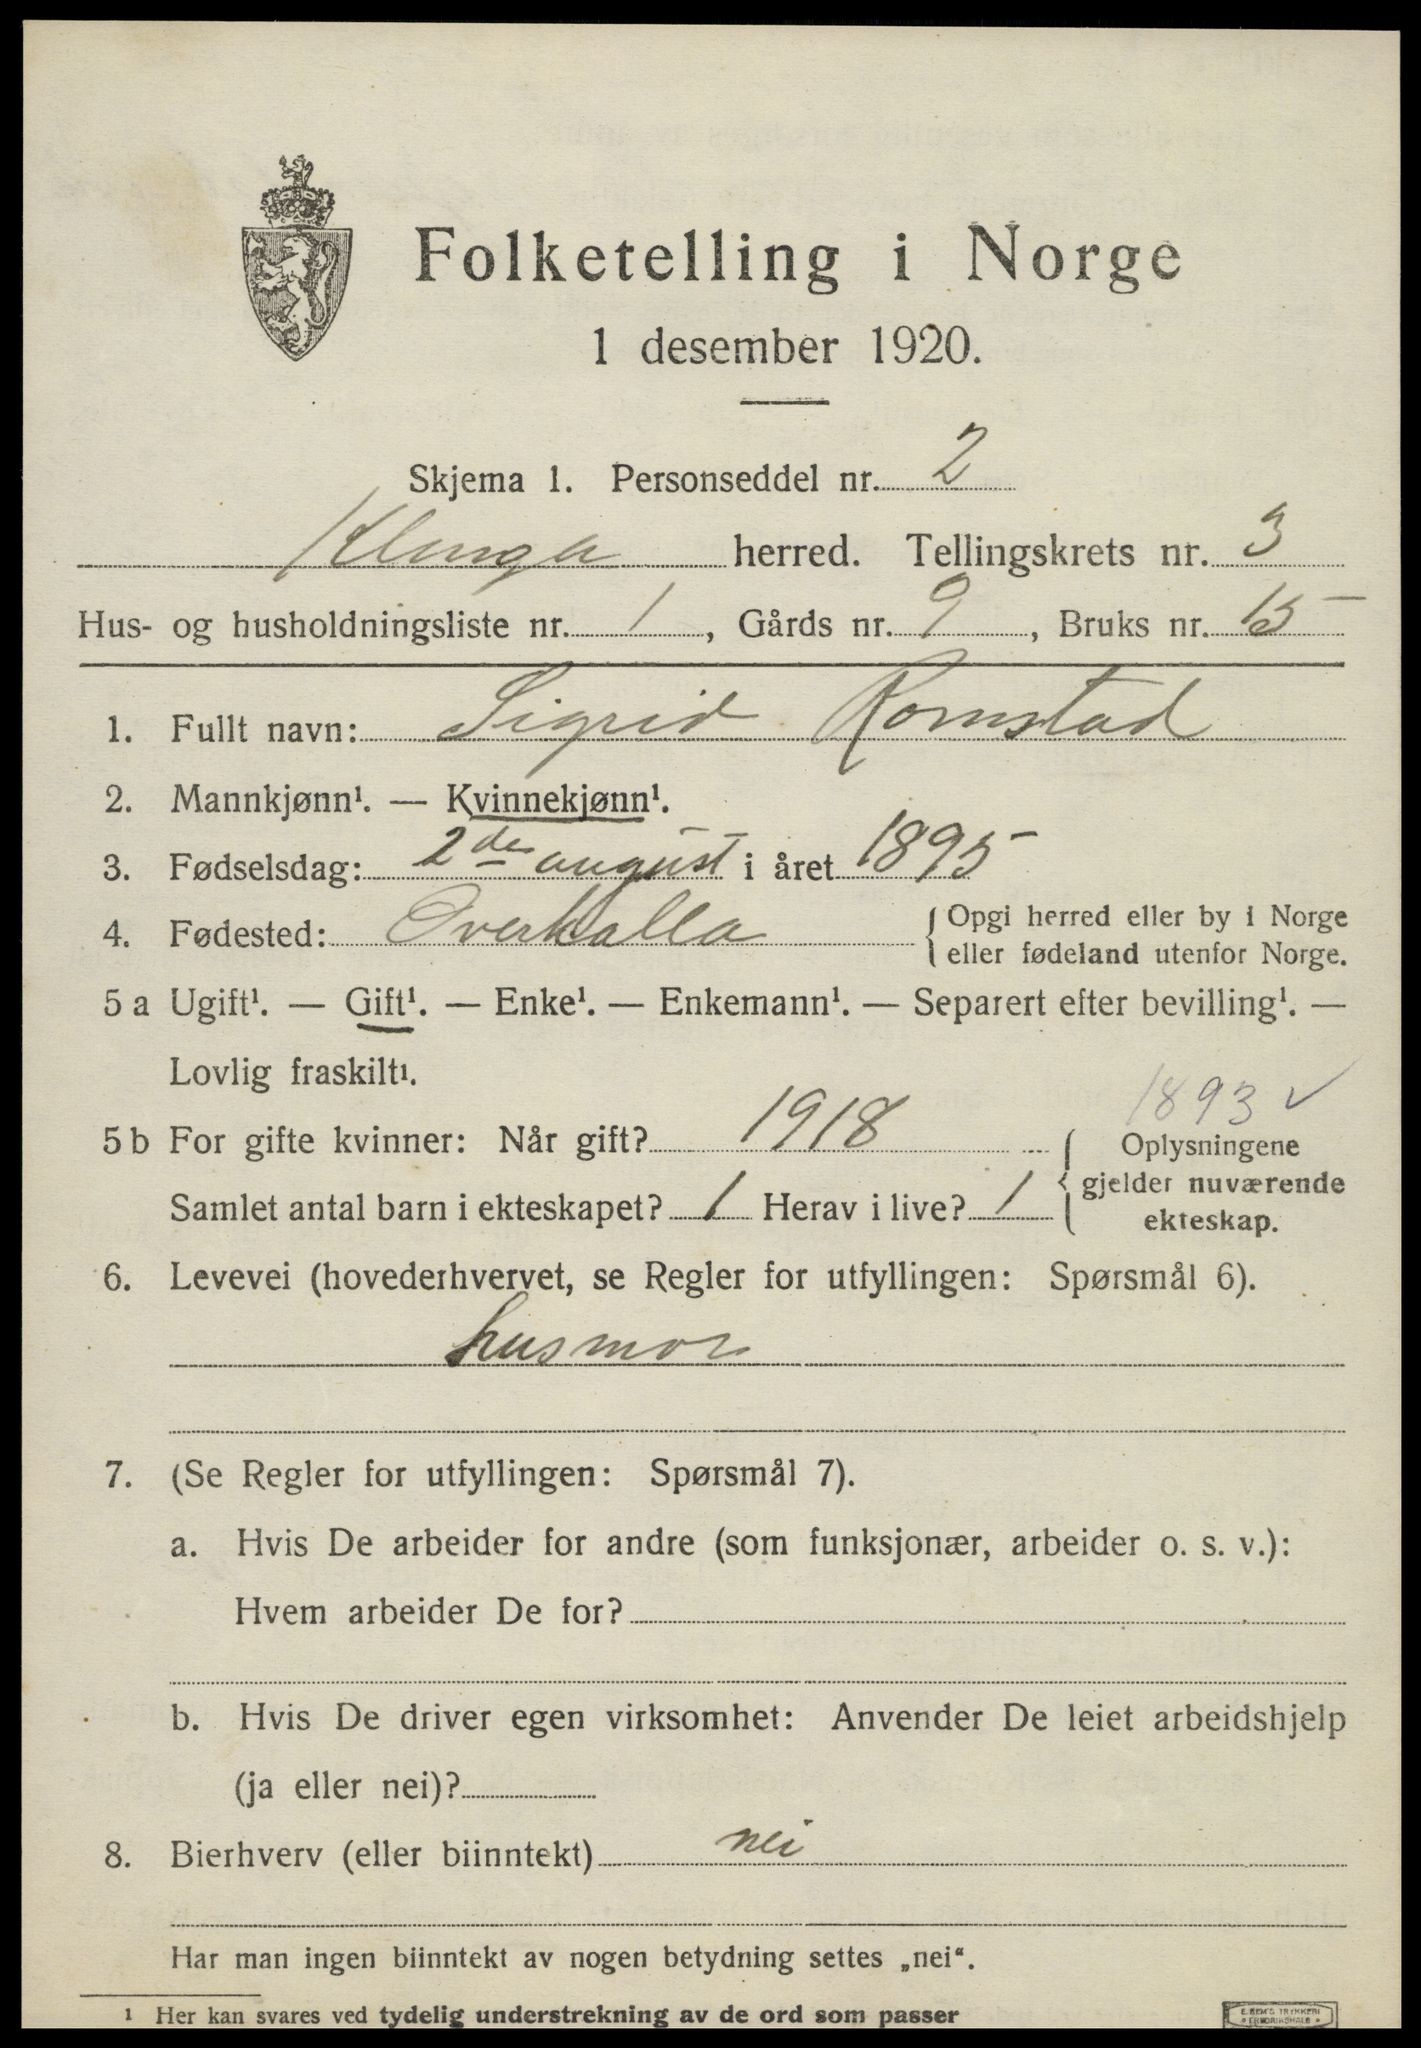 Folketelling i Norge
1 desember 1920.
Skjema 1. Personseddel nr. 2
Klinga herred. Tellingskrets nr. 3
Hus- og husholdningsliste nr. 1, Gårds nr. 9, Bruks nr. 15
1. Fullt navn: Sigrid Romstad
2. Mannkjønn¹. — Kvinnekjønn¹.
3. Fødselsdag: 2de august i året 1895
4. Fødested: Overhalla { Opgi herred eller by i Norge
eller fødeland utenfor Norge.
5 a Ugift¹. — Gift¹. — Enke¹. — Enkemann¹. — Separert efter bevilling¹. —
Lovlig fraskilt¹.
1893 ✓
5 b For gifte kvinner: Når gift? 1918 { Oplysningene
gjelder nuværende
ekteskap.
Samlet antal barn i ekteskapet? 1 Herav i live? 1
6. Levevei (hovederhvervet, se Regler for utfyllingen: Spørsmål 6).
husmor
7. (Se Regler for utfyllingen: Spørsmål 7).
a. Hvis De arbeider for andre (som funksjonær, arbeider o. s. v.):
Hvem arbeider De for?
b. Hvis De driver egen virksomhet: Anvender De leiet arbeidshjelp
(ja eller nei)?
8. Bierhverv (eller biinntekt) nei
Har man ingen biinntekt av nogen betydning settes „nei“.
¹ Her kan svares ved tydelig understrekning av de ord som passer
E. SEM'S TRYKKERI
FREDRIKSHALD